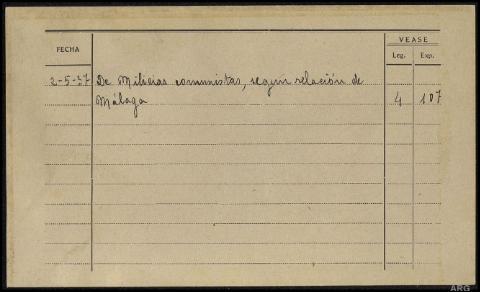 VEASE
FECHA Leg. Exp.
2-5-37 De Milicias comunistas, según relación de
Málaga 4 107
ARG